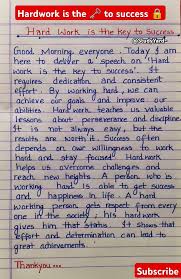 Hardwork is the 🗝 to success 🔒
Hard Work is the Key to Success
Good Morning everyone. Today I am
here to deliver a speech on "Hard
work is the key to success". It
requires dedication and consistent
effort. By working hard, we can
achieve our goals and improve our
abilities. Hard work teaches us valuable
lessons about perseverance and discipline.
It is not always easy, but the
results are worth it. Success often
depends on our willingness to work
hard and stay focused. Hard work
helps us overcome challenges and
reach new heights. A person who is
working hard is able to get success
and happiness in life. A hard
working person gets respect from every
one in the society, his hard work
gives him that status. It shows that
effort and determination can lead to
great achievements.
Thankyou...
Subscribe